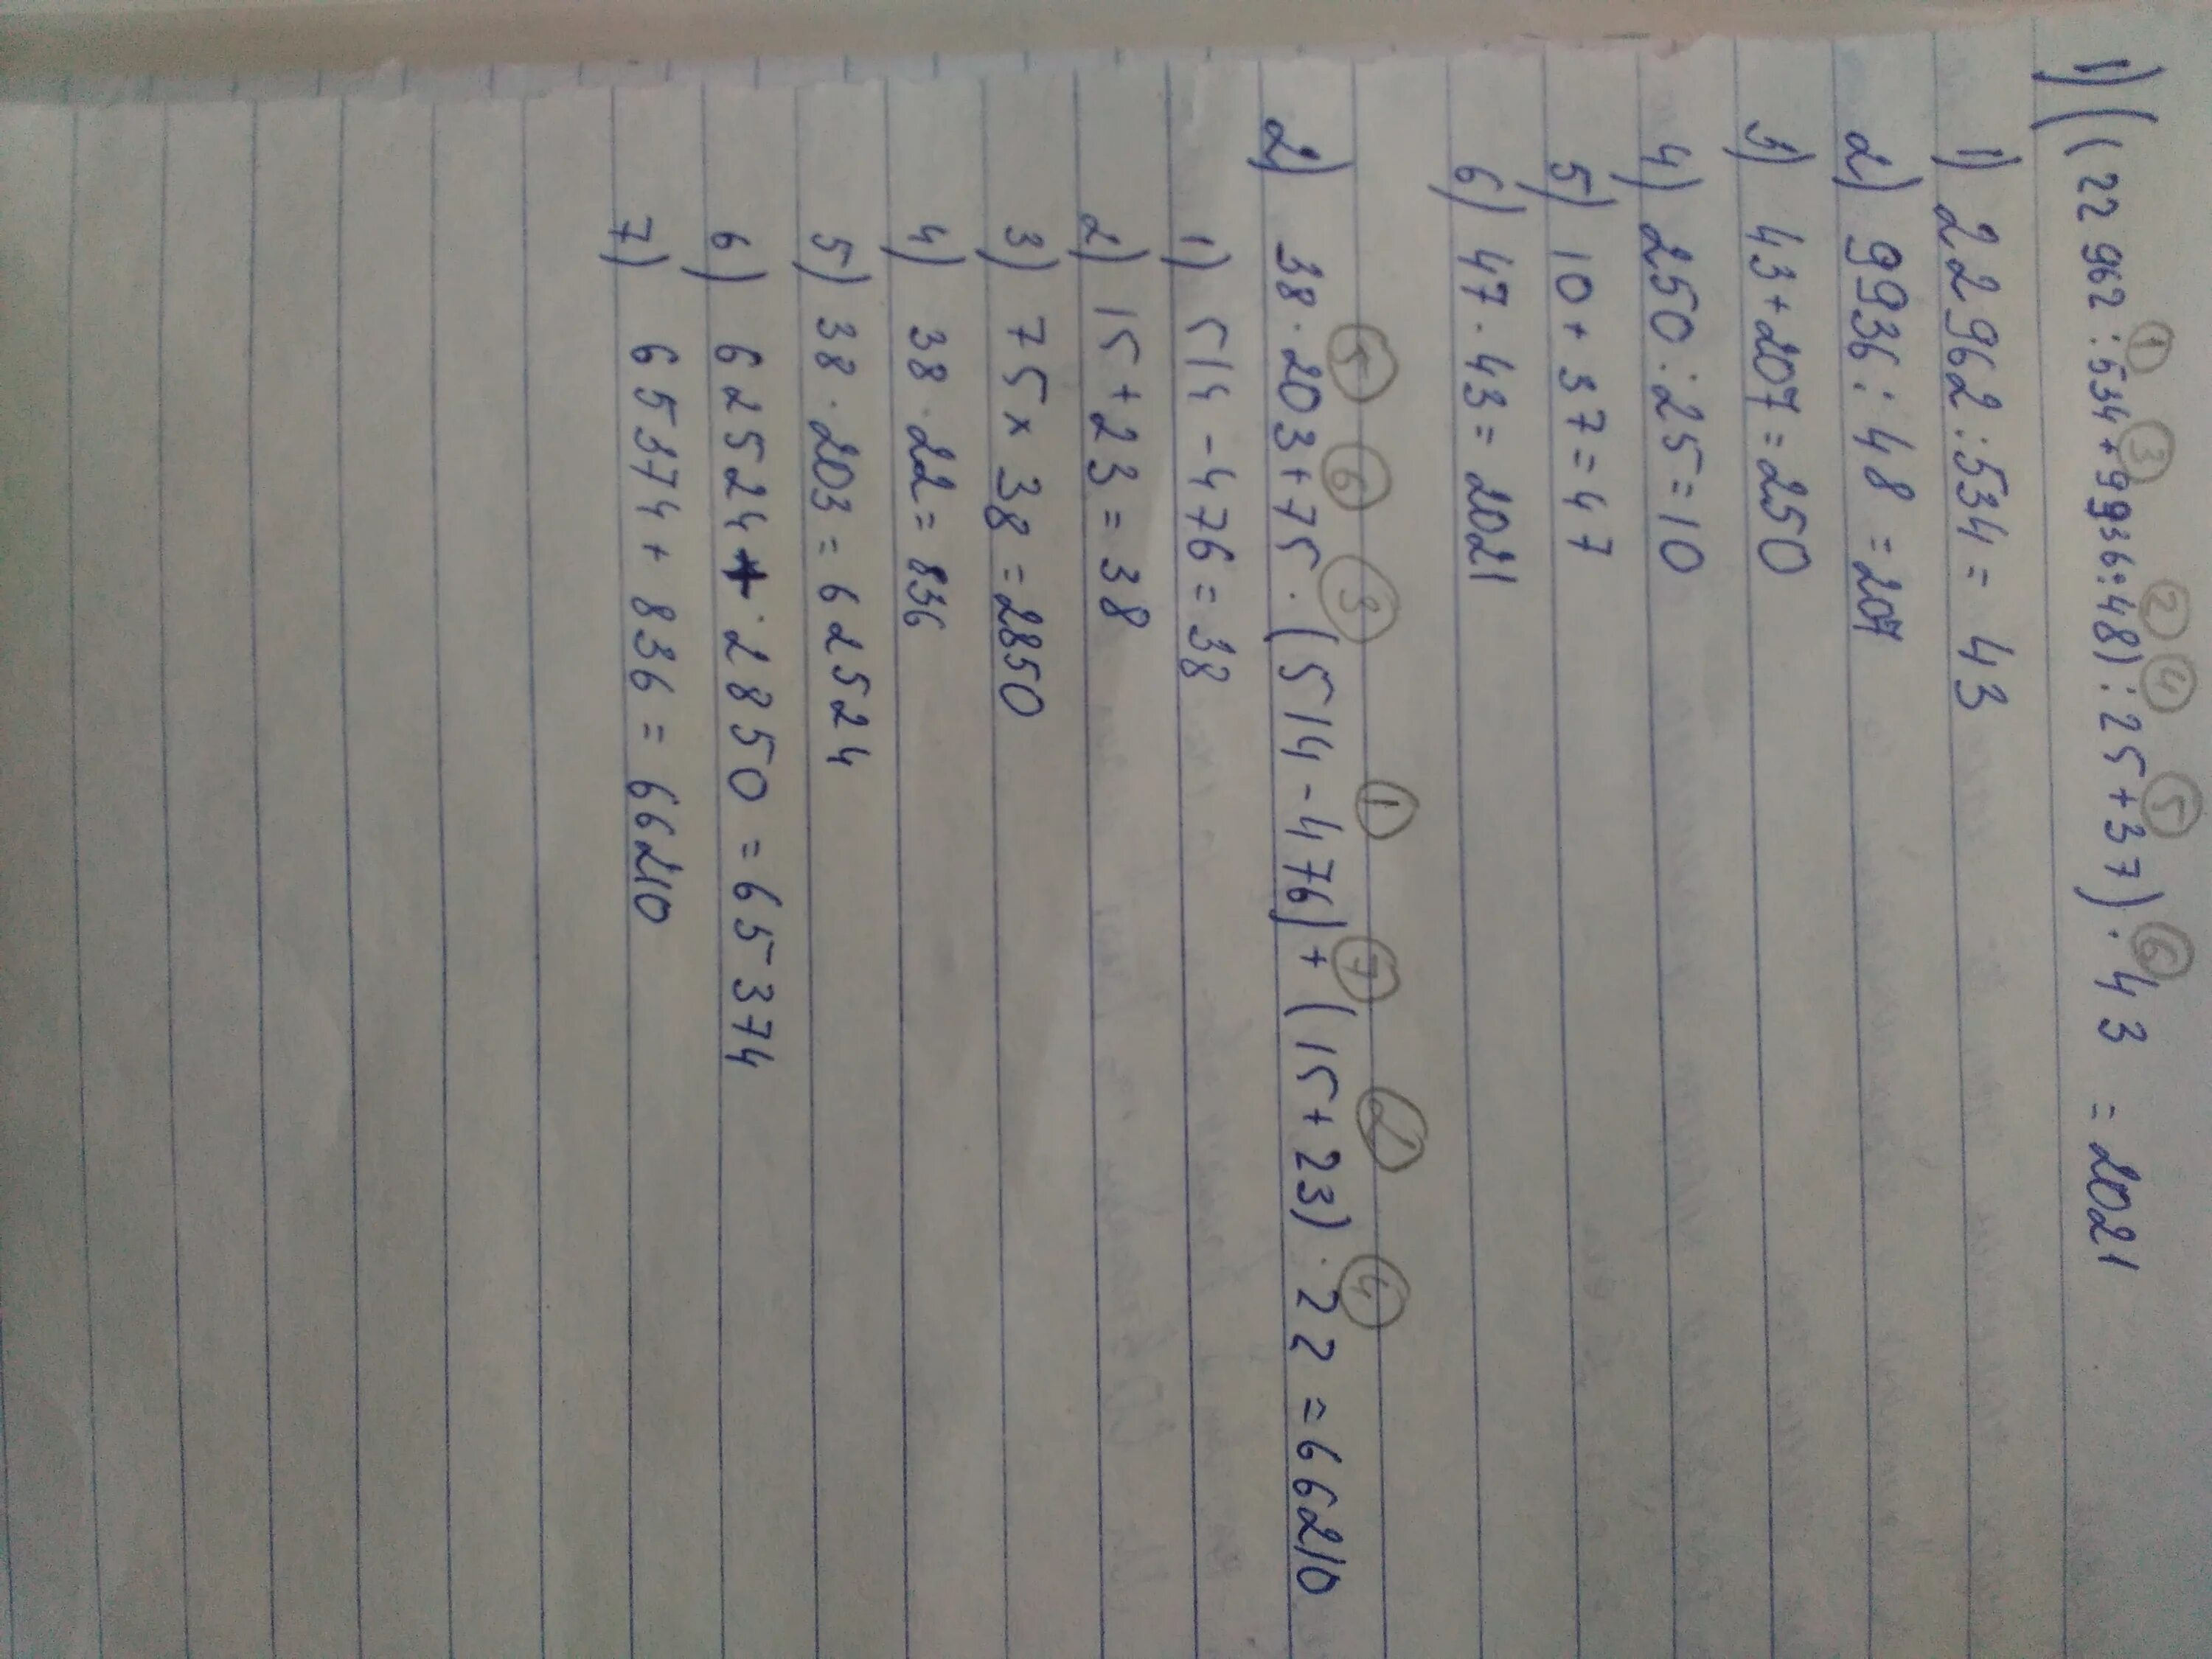 ① ③ ② ④ ⑤ ⑥
1) ((22 962 : 534 + 9936 : 48) : 25 + 37) · 43 = 2021
1) 22962 : 534 = 43
2) 9936 : 48 = 207
3) 43 + 207 = 250
4) 250 : 25 = 10
5) 10 + 37 = 47
6) 47 · 43 = 2021
⑤ ⑥ ③ ① ⑦ ② ④
2) 38 · 203 + 75 · (514 - 476) + (15 + 23) · 22 = 66210
1) 514 - 476 = 38
2) 15 + 23 = 38
3) 75 x 38 = 2850
4) 38 · 22 = 836
5) 38 · 203 = 62524
6) 62524 + 2850 = 65374
7) 65374 + 836 = 66210